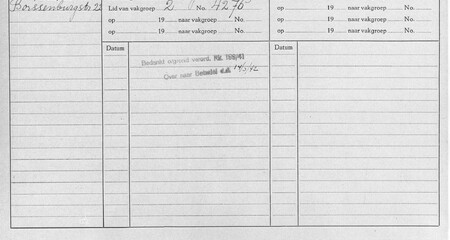 Borssenburgstr. 22 Lid van vakgroep 2 No. 4276 op 19 naar vakgroep No.
op 19 naar vakgroep No. op 19 naar vakgroep No.
op 19 naar vakgroep No. op 19 naar vakgroep No.
Datum Datum
Bedankt ingevolge
Over naar d.d. 14/5/42